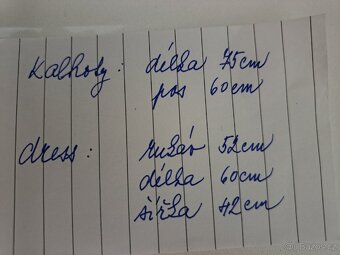 Kalhoty: délka 75cm
pas 60cm
dress: rukáv 52cm
délka 60cm
šířka 42cm